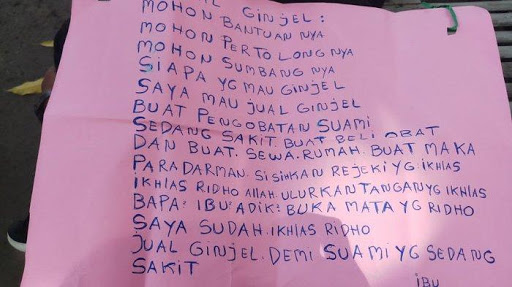 AL GINJEL :
MOHON BANTUAN NYA
MOHON PERTOLONG NYA
MOHON SUMBANG NYA
SIAPA YG MAU GINJEL
SAYA MAU JUAL GINJEL
BUAT PENGOBATAN SUAMI
SEDANG SAKIT. BUAT BELI OBAT
DAN BUAT. SEWA. RUMAH. BUAT MAKA
PARA DARMAN. SISIHKAN REJEKI YG IKHLAS
IKHLAS RIDHO ALLAH. ULURKAN TANGAN YG IKHLAS
BAPA! IBU! ADIK! BUKA MATA YG RIDHO
SAYA SUDAH. IKHLAS RIDHO
JUAL GINJEL. DEMI SUAMI YG SEDANG
SAKIT
IBU